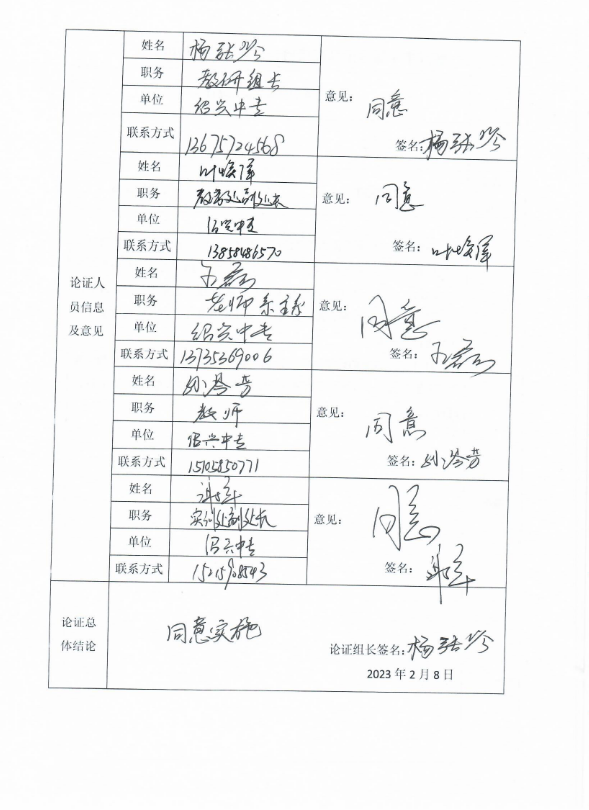 姓名
职务 教研组长
单位 绍兴中专
意见： 同意
联系方式 13675724568
签名：
姓名
职务 教务处副处长
单位 绍兴中专
意见： 同意
联系方式 13858486570
签名：
论证人
员信息
及意见
姓名 王磊
职务
单位 绍兴中专
意见： 同意
联系方式 13735369006
签名：王磊
姓名 孙琴芳
职务 教师
单位 绍兴中专
意见： 同意
联系方式 15105850771
签名：孙琴芳
姓名
职务 实训处副处长
单位 绍兴中专
意见： 同意
联系方式 15215908543
签名：
论证总
体结论
同意实施
论证组长签名：
2023 年 2 月 8 日